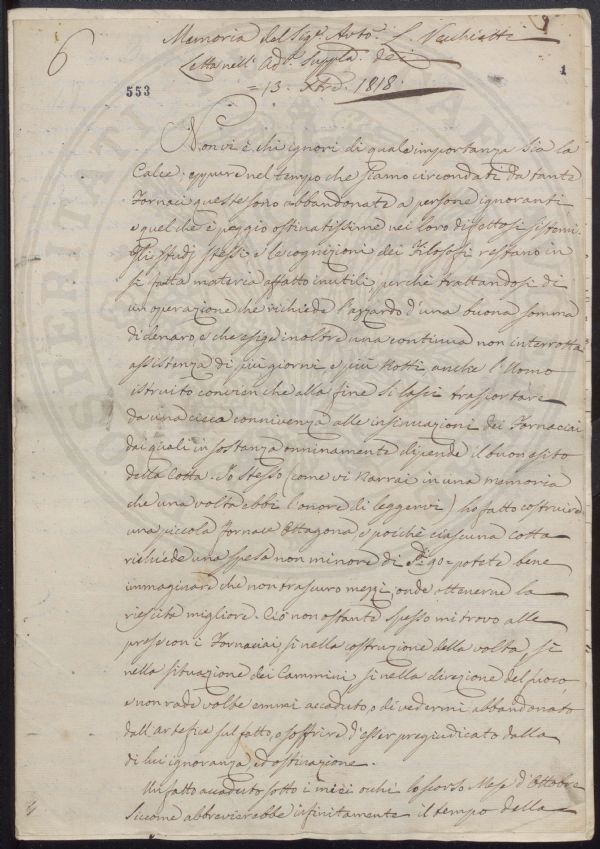 6
9
Memoria del Sigr. Anto. F. Vecchietti
Letta nell' Adza. Suppla. dei
= 13. Xbre. 1818.
1
553
Non vi è chi ignori di quale importanza sia la
Calce; eppure nel tempo che siamo circondati da tante
Fornaci queste sono abbandonate a persone ignoranti
e quel che è peggio ostinatissime nei loro difettosi sistemi.
Gli studj stessi e le cognizioni dei Filosofi restano in
sì fatta materia affatto inutili perchè trattandosi di
un operazione che richiede l'azzardo d'una buona somma
di denaro, e che esige inoltre una continua non interrotta
assistenza di più giorni e più notti anche l'Uomo
istruito convien che alla fine si lasci trasportare
da una cieca connivenza alle insinuazioni dei Fornaciai
dai quali in sostanza onninamente dipende il buon esito
della Cotta. Io stesso (come vi narrai in una memoria
che una volta ebbi l'onore di leggervi) ho fatto costruire
una piccola Fornace Ottagona e poichè ciascuna cotta
richiede una spesa non minore di 90= potete bene
immaginare che non trascuro mezzi onde ottenerne la
riescita migliore. Ciò non ostante spesso mi trovo alle
prese con i Fornaciai sì nella costruzione della volta, sì
nella situazione dei Cammini, sì nella direzione del fuoco,
e non rade volte emmi accaduto, o di vedermi abbandonato
dall'artefice sul fatto, o soffrire d'esser pregiudicato dalla
di lui ignoranza, ed ostinazione.
Un fatto accaduto sotto i miei occhi lo scorso Mese d'Ottobre
siccome abbrevierebbe infinitamente il tempo della